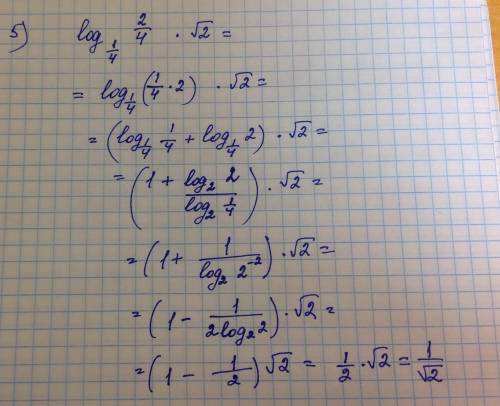 5) log_{1/4} 2/4 · √2 =
= log_{1/4} (1/4 · 2) · √2 =
= (log_{1/4} 1/4 + log_{1/4} 2) · √2 =
= (1 + log₂ 2 / log₂ 1/4) · √2 =
= (1 + 1 / log₂ 2⁻²) · √2 =
= (1 − 1 / 2log₂ 2) · √2 =
= (1 − 1/2) √2 = 1/2 · √2 = 1/√2